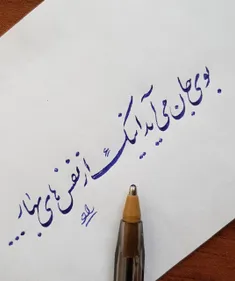 بوی جان می آید اینک از نفس های بهار...